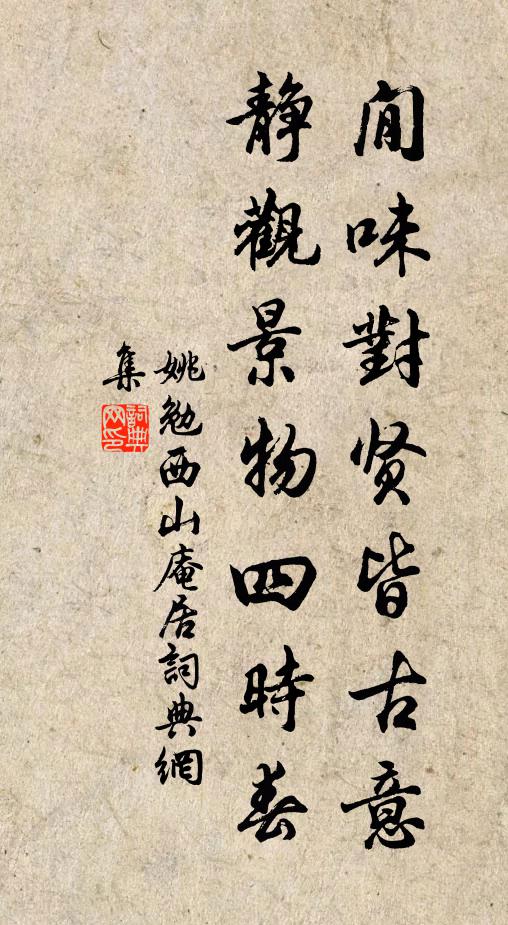 閒味對贤皆古意
静觀景物四時春
姚勉西山庵居詞典網
集
詞典
网印